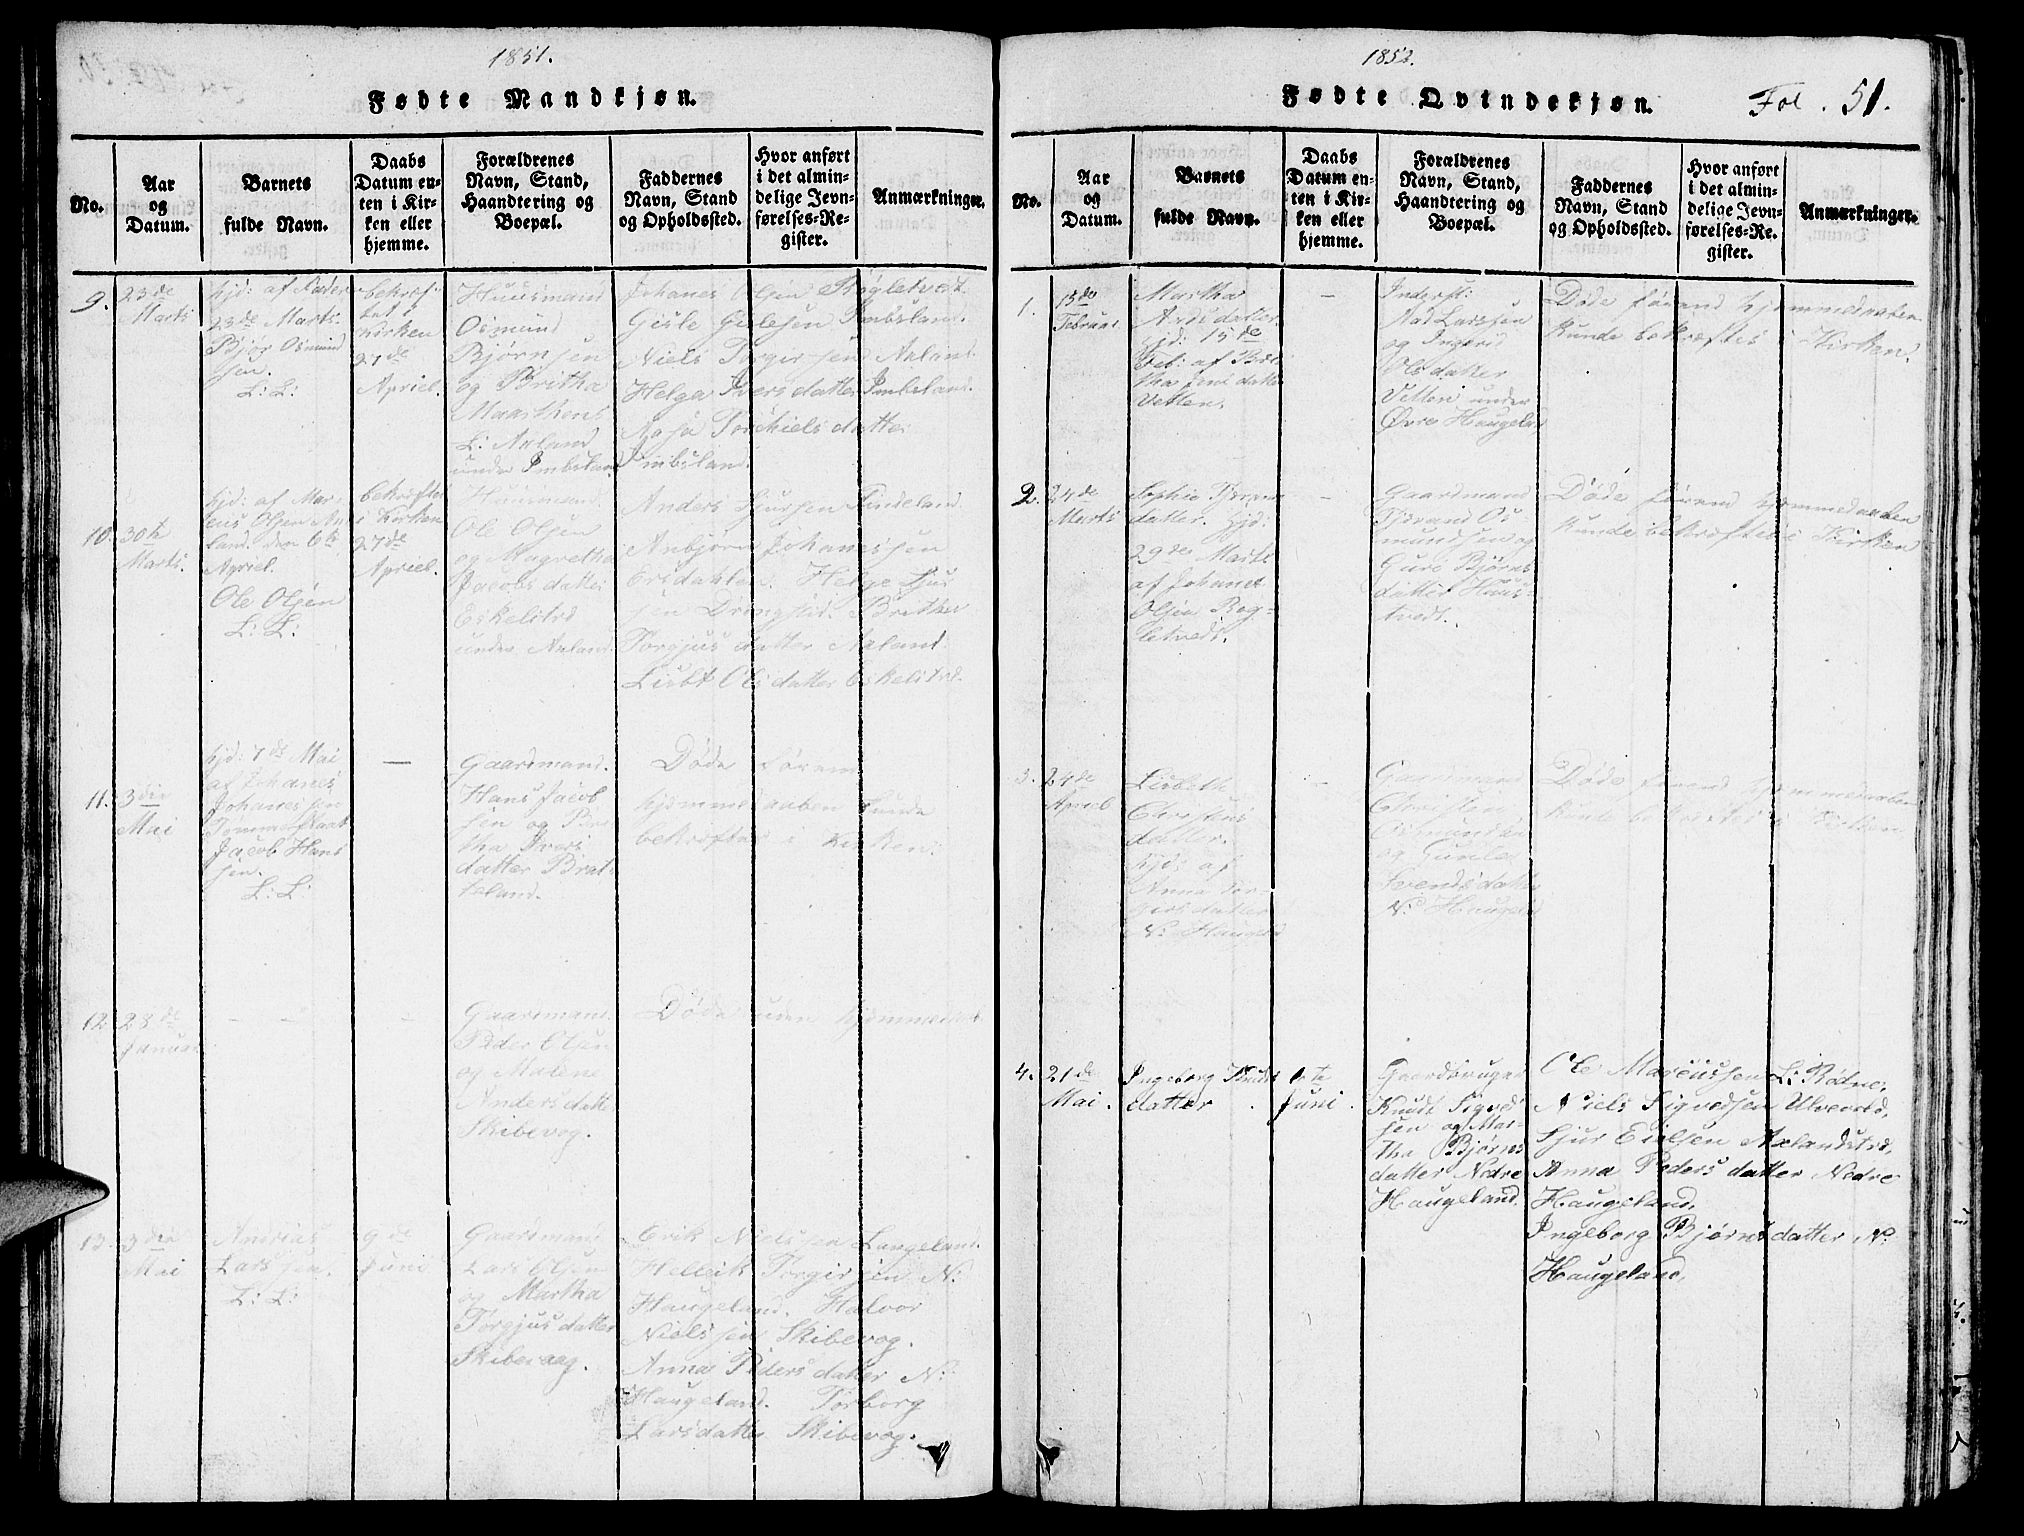 1851.
Fødte Mandkjøn.
No.
Aar
og
Datum.
Barnets
fulde Navn.
Daabs
Datum en-
ten i Kir-
ken eller
hjemme.
Forældrenes
Navn, Stand,
Haandtering og
Boepæl.
Faddernes
Navn, Stand
og Opholdssted.
Hvor anført
i det almin-
delige Jevn-
førelses-Re-
gister.
Anmærkninger.
9.
23de
Marts
hjd: af Fader
23de Marts.
Osmund
sen.
L: L:
bekræf-
tet i
Kirken
27de
Apriel.
Huusmand
Osmund
Bjørnsen
og Britha
L: Axland
under Imbsland
Johanes Olsen
Gisle Gislesen Imbsland.
Niels Torgersen Axland.
Helga Iversdatter Imbsland.
Torkielsdatter
Imbsland.
10.
30te
Marts.
hjd: af Mar-
cus Olsen Ax-
land. den 6te
Apriel.
Ole Olsen
L: L:
bekræftet
i Kirken
27de
Apriel.
Huusmand
Ole Olsen
og Magretha
Jacobsdatter
under Axland.
Anders Sjursen
Anbjørn Johanessen
Helge Sjur
sen Britha
Torgjusdatter Axland.
Olsdatter
11.
3die
Mai
hjd: 7de Mai
af Johanes
Johanessen
Jacob Hans
sen.
L: L:
—
Gaardmand.
Hans Jacob
sen og Bri
tha Ivers
datter Brat-
teland.
Døde førend
hjemmedaaben kunde
bekræftes i Kirken.
12.
28de
Januar
- -
-
Gaardmand.
Peder Olsen
og Malene
Andersdatter
Skibevog.
Døde uden hjemmedaab
13.
3die
Mai
Andreas
Larssen.
L: L:
9de
Juni
Gaardmand
Lars Olsen
og Martha
Torgjusdatter
Skibevaag.
Erik Nielssen Langeland.
Helleik Torgersen N:
Haugeland. Halvor
Nielssen Skibevog.
Anna Pedersdatter N:
Haugeland. Torborg
Larsdatter Skibevog.
1852.
Fødte Qvindekjøn.
Fol. 51.
No.
Aar
og
Datum.
Barnets
fulde Navn.
Daabs
Datum en-
ten i Kir-
ken eller
hjemme.
Forældrenes
Navn, Stand,
Haandtering og
Boepæl.
Faddernes
Navn, Stand
og Opholdssted.
Hvor anført
i det almin-
delige Jevn-
førelses-Re-
gister.
Anmærkninger.
1.
15de
Februar
Martha
Aadsdatter.
hjd: 15de
Feb: af
Vetten.
-
Inderst:
Aad Larssen
og Ingerid
Olsdatter
Vetten under
Øvre Haugeland
Døde førend hjemmedaaben
kunde bekræftes i Kirken.
2.
24de
Marts
Sophie
datter. hjd:
29de Marts
af Johanes
Olsen
-
Gaardmand
Tjerand Os
mundsen og
Guri Bjørns
datter
tvedt.
Døde førend hjemmedaaben
kunde bekræftes i Kirken
3.
24de
Apriel
Lisbeth
Christens
datter.
hjd: af
Anna Tor
gersdatter
N: Haugeld
-
Gaardmand
Christen
Osmundsen
og Gunla
Svendsdatter
N: Haugeld
Døde førend hjemmedaaben
kunde bekræftes i Kirken
4.
21de
Mai.
Ingeborg Knuds
datter.
Juni.
Gaardbruger
Knudt Sigved
sen og Mar-
tha Bjørns
datter Nedre
Haugeland.
Ole Marcussen L: Rødne,
Niels Sigvedsen
Sjur Eielsen
Anna Pedersdatter Nedre
Haugeland.
Ingeborg Bjørnsdatter N:
Haugeland.